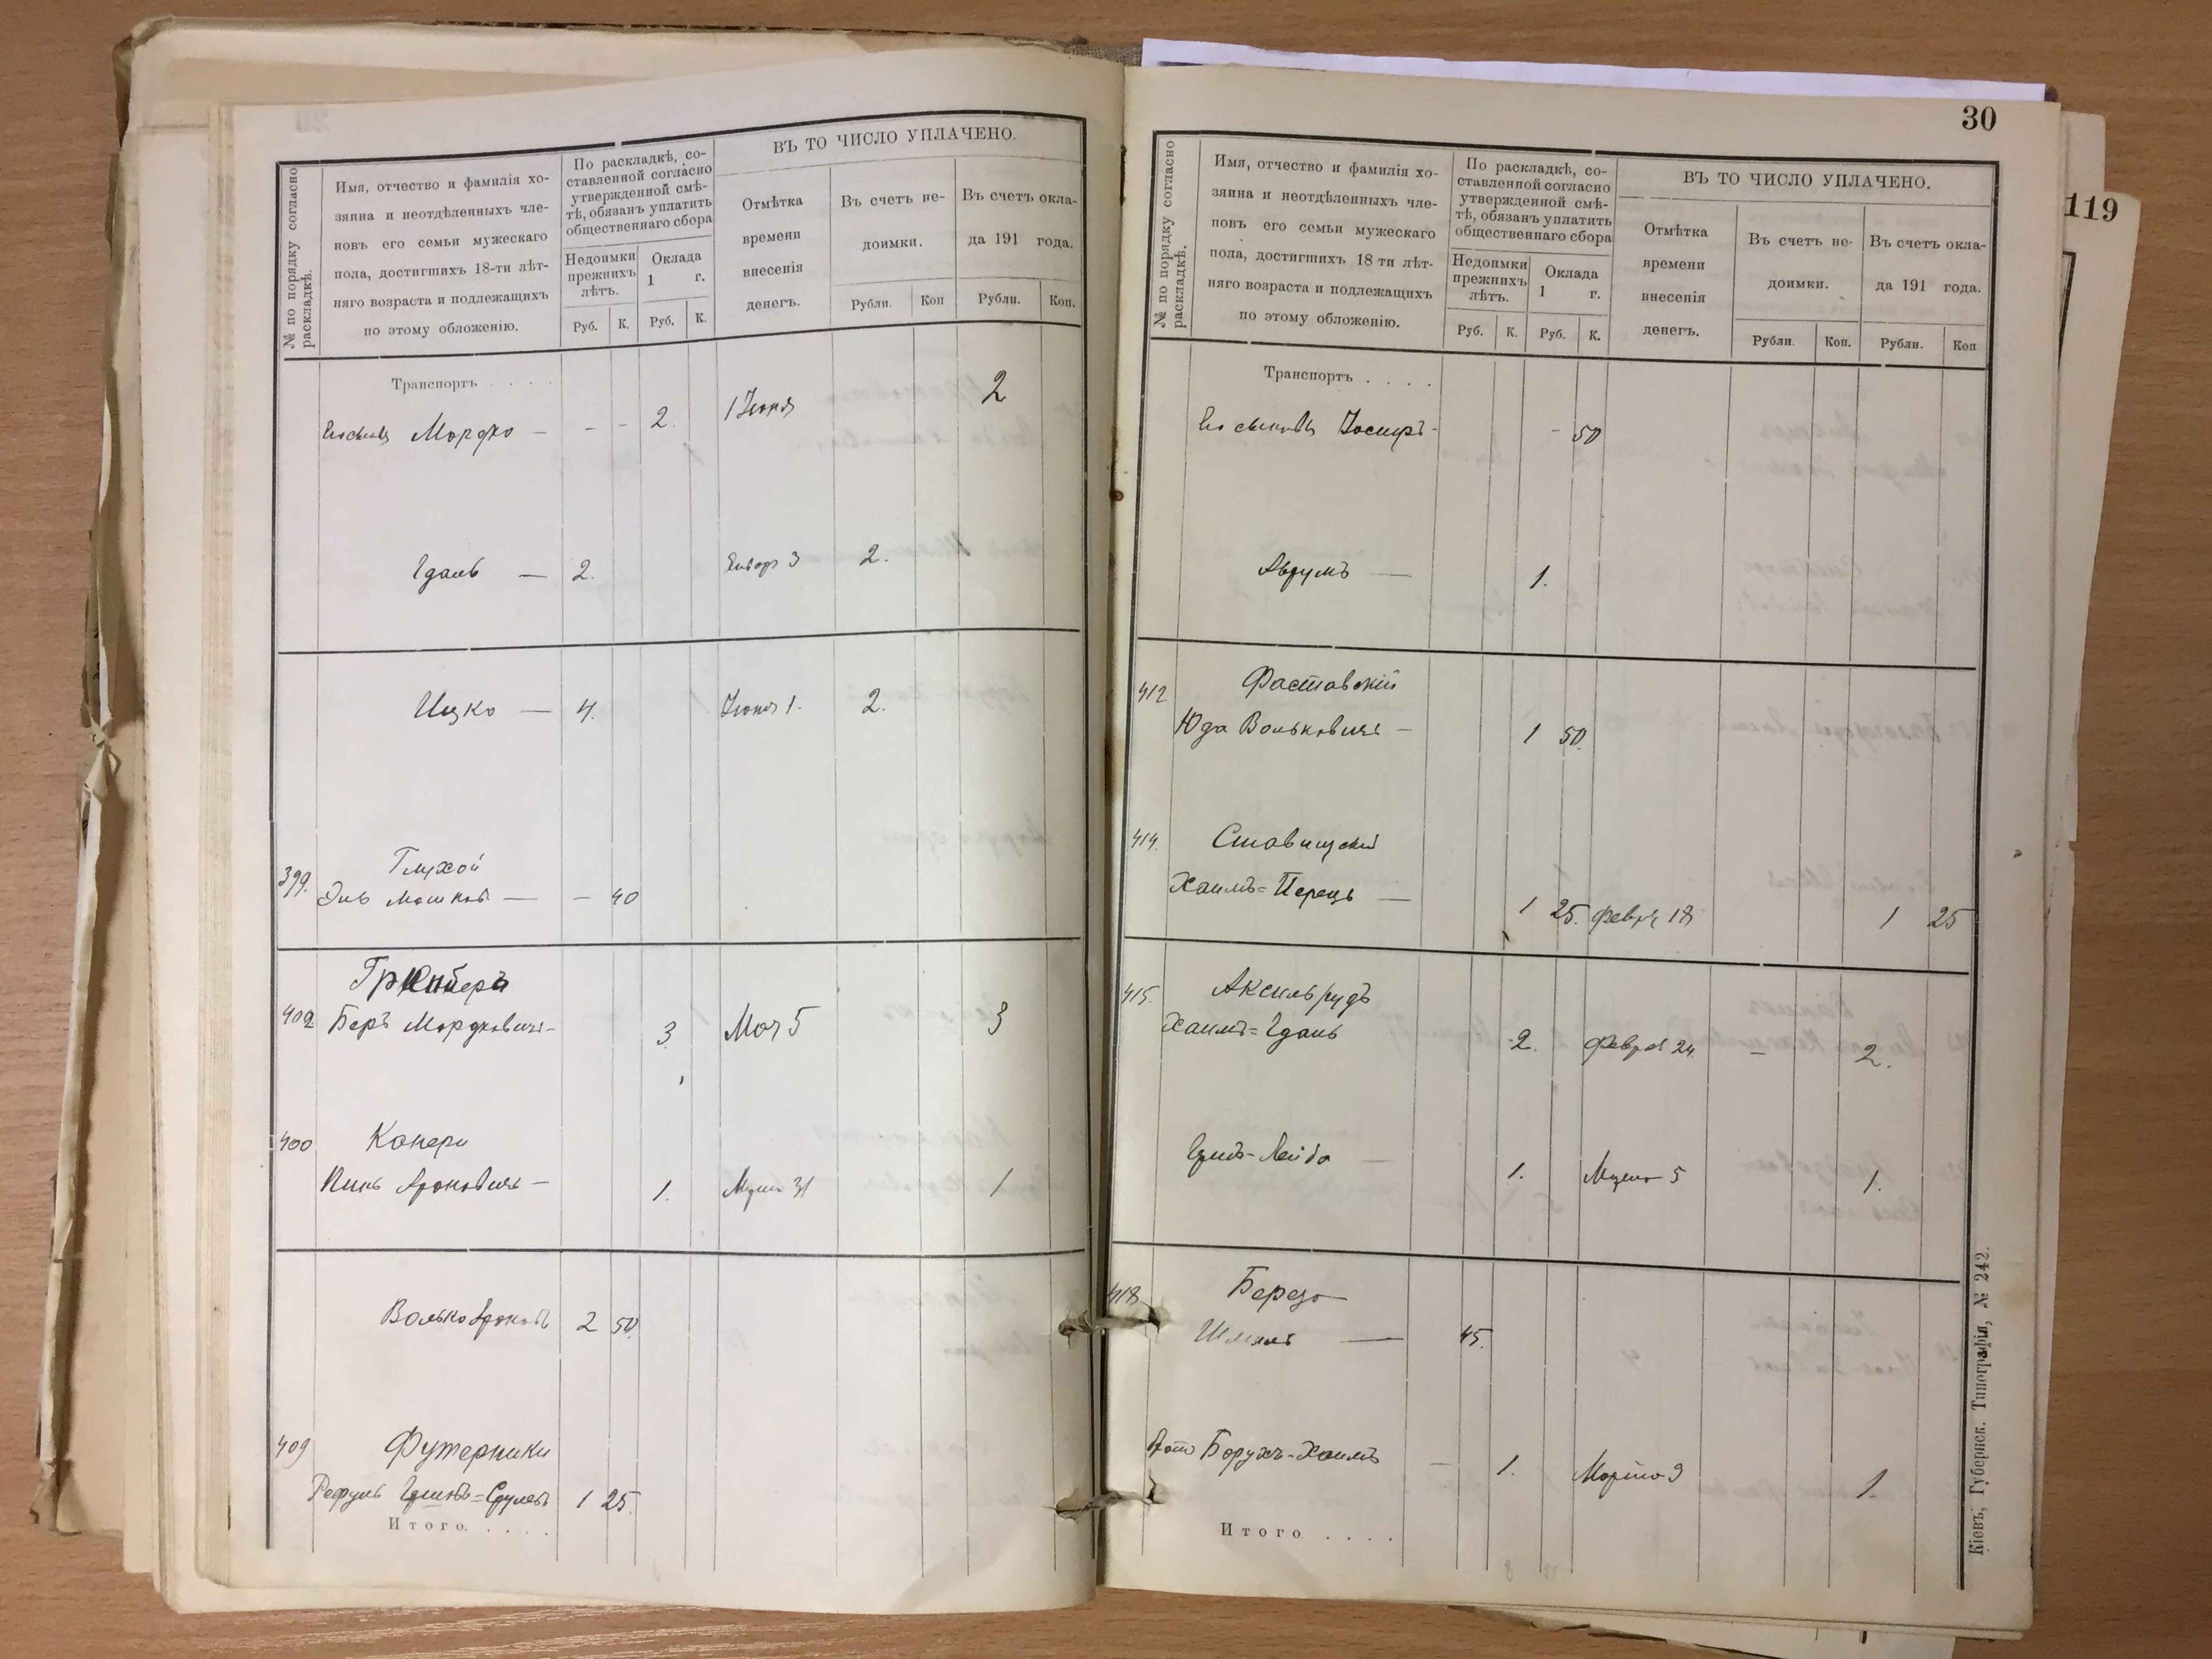 № по порядку согласно раскладкѣ.
Имя, отчество и фамилія хо-
зяина и неотдѣленныхъ чле-
новъ его семьи мужескаго
пола, достигшихъ 18-ти лѣт-
няго возраста и подлежащихъ
по этому обложенію.
По раскладкѣ, со-
ставленной согласно
утвержденной смѣ-
тѣ, обязанъ уплатить
общественнаго сбора
Недоимки
прежнихъ
лѣтъ.
Оклада
1 г.
Руб. К. Руб. К.
ВЪ ТО ЧИСЛО УПЛАЧЕНО.
Отмѣтка
времени
внесенія
денегъ.
Въ счетъ не-
доимки.
Въ счетъ окла-
да 191 года.
Рубли. Коп Рубли. Коп.
Транспортъ . . . .
Мордко — - - 2. 1 Июня 2
Гдаль — 2. Январ 3 2.
Ицко — 4. Июня 1. 2.
399. Глухой
Эль Мошков — - 40
402 Грюнберъ
Беръ Мордковичъ - 3. Мая 5 3
400 Канери
Пинь Ароновичъ - 1. 31 1
Волько Ароновъ 2 50
409 Футерники
Рефуль 1 25.
Итого. . . . .
30
№ по порядку согласно раскладкѣ.
Имя, отчество и фамилія хо-
зяина и неотдѣленныхъ чле-
новъ его семьи мужескаго
пола, достигшихъ 18 ти лѣт-
няго возраста и подлежащихъ
по этому обложенію.
По раскладкѣ, со-
ставленной согласно
утвержденной смѣ-
тѣ, обязанъ уплатить
общественнаго сбора
Недоимки
прежнихъ
лѣтъ.
Оклада
1 г.
Руб. К. Руб. К.
ВЪ ТО ЧИСЛО УПЛАЧЕНО.
Отмѣтка
времени
внесенія
денегъ.
Въ счетъ не-
доимки.
Въ счетъ окла-
да 191 года.
Рубли. Коп. Рубли. Коп
Транспортъ . . . .
Его сыновья Иосифъ - - 50
Аврумъ — 1.
412 Фастовскій
Юда Вольковичъ - 1 50
414. Ставицскій
Хаимъ=Перецъ — 1 25. Февр. 18 1 25
415. Аксильрудъ
Хаимъ=Гдаль 2. Февра 24 - 2.
Лейба — 1. 5 1.
418 Береза
Шмиль — 45.
Борухъ-Хаимъ - 1. Марта 9 1.
Итого . . . .
Кіевъ, Губернск. Типографія, № 242.
119